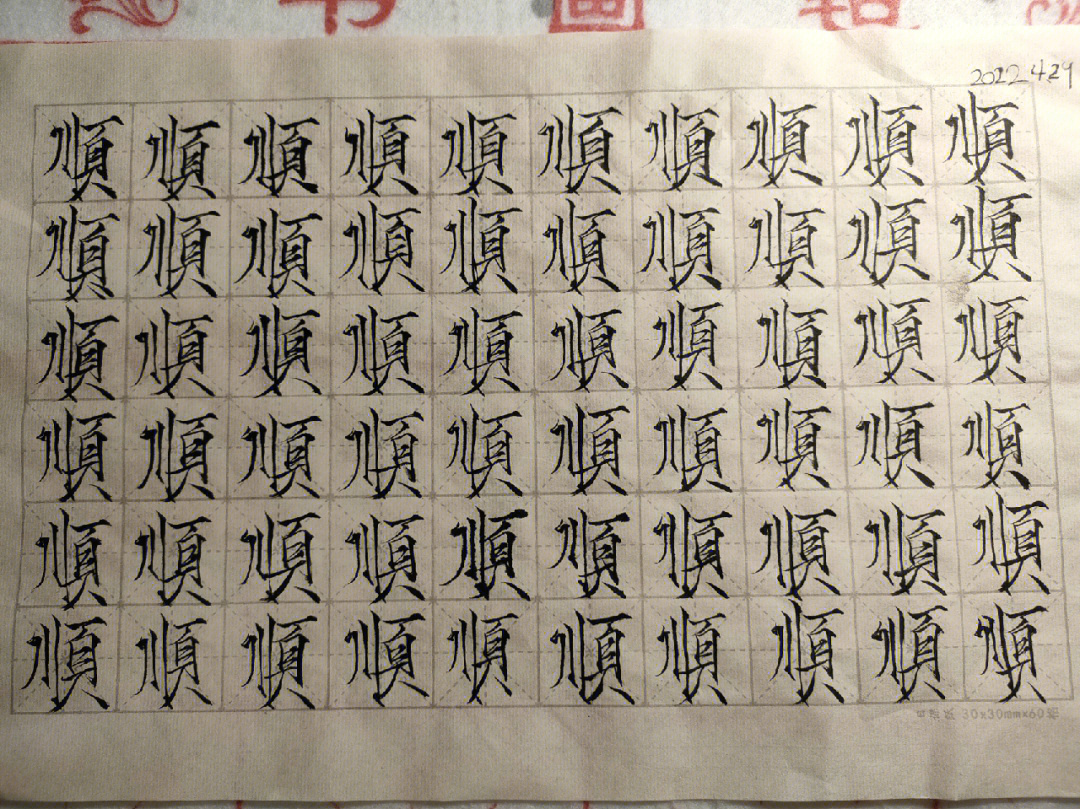 2022 4 29
順順順順順順順順順順
順順順順順順順順順順
順順順順順順順順順順
順順順順順順順順順順
順順順順順順順順順順
順順順順順順順順順順
30x30mmx60